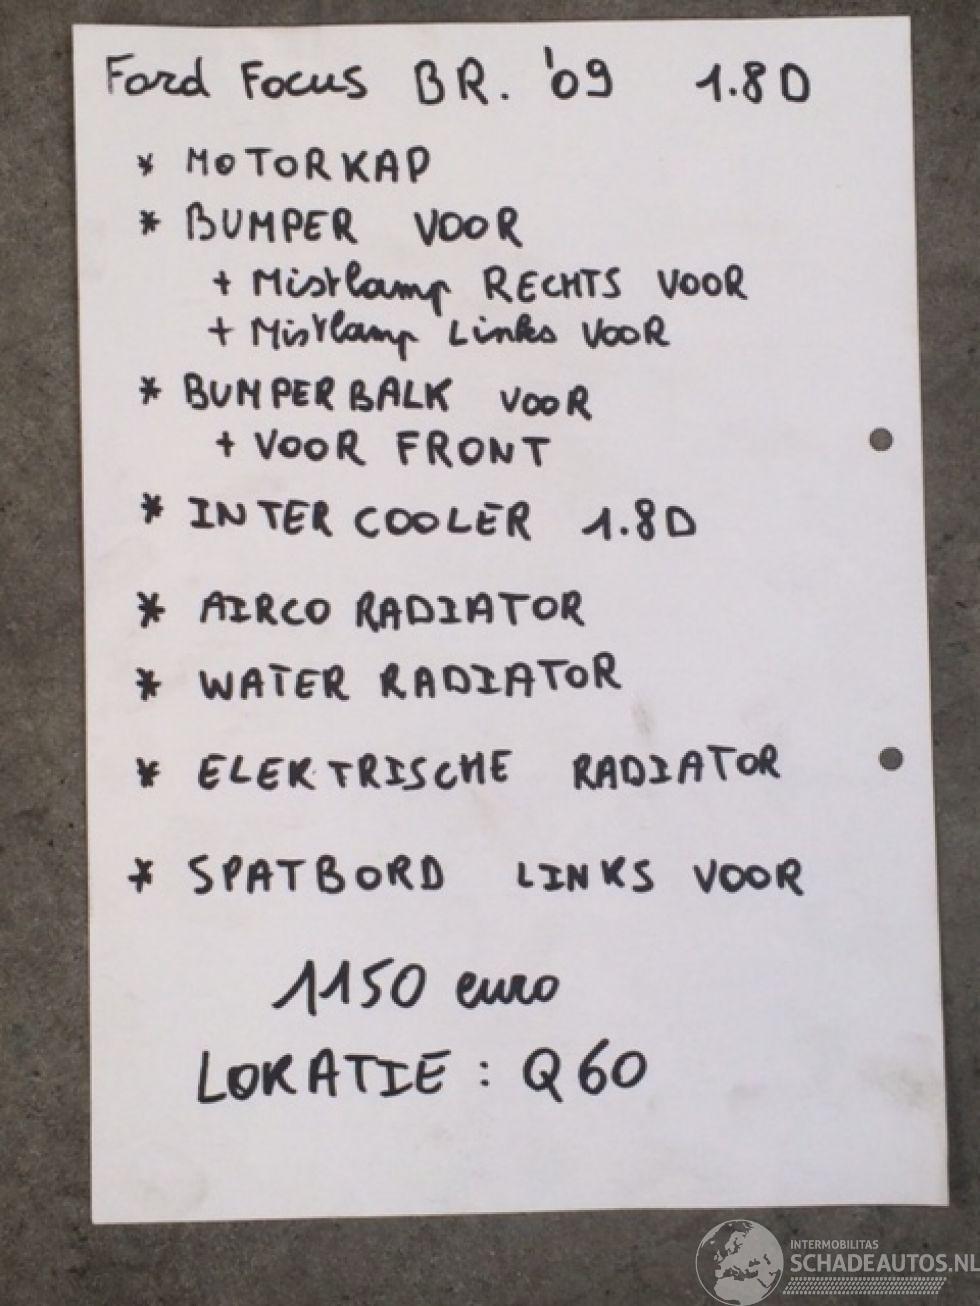 Ford Focus BR. '09 1.8D
* MOTORKAP
* BUMPER VOOR
+ Mistlamp RECHTS VOOR
+ Mistlamp Links VOOR
* BUMPERBALK VOOR
+ VOOR FRONT
* INTER COOLER 1.8D
* AIRCO RADIATOR
* WATER RADIATOR
* ELEKTRISCHE RADIATOR
* SPATBORD LINKS VOOR
1150 euro
LOKATIE : Q60
INTERMOBILITAS
SCHADEAUTOS.NL